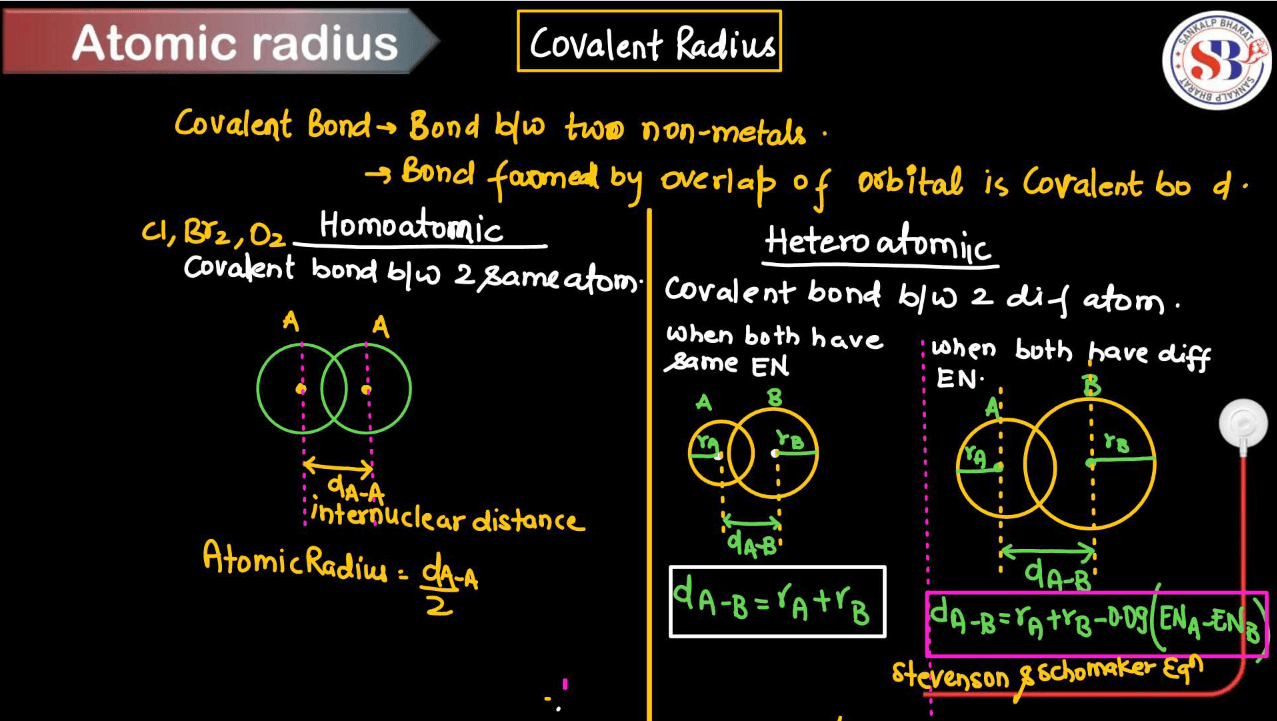 Atomic radius
Covalent Radius
SANKALP BHARAT
SB
SANKALP BHARAT
Covalent Bond → Bond b/w two non-metals.
→ Bond formed by overlap of orbital is Covalent bo d.
Cl, Br₂, O₂ Homoatomic
Covalent bond b/w 2 same atom.
A A
dA-A
internuclear distance
Atomic Radius = dA-A/2
Heteroatomic
Covalent bond b/w 2 dif atom.
when both have
same EN
A B
rA rB
dA-B
dA-B = rA + rB
when both have diff
EN.
A B
rA rB
dA-B
dA-B = rA + rB - 0.09(ENA - ENB)
Stevenson & Schomaker Eqn